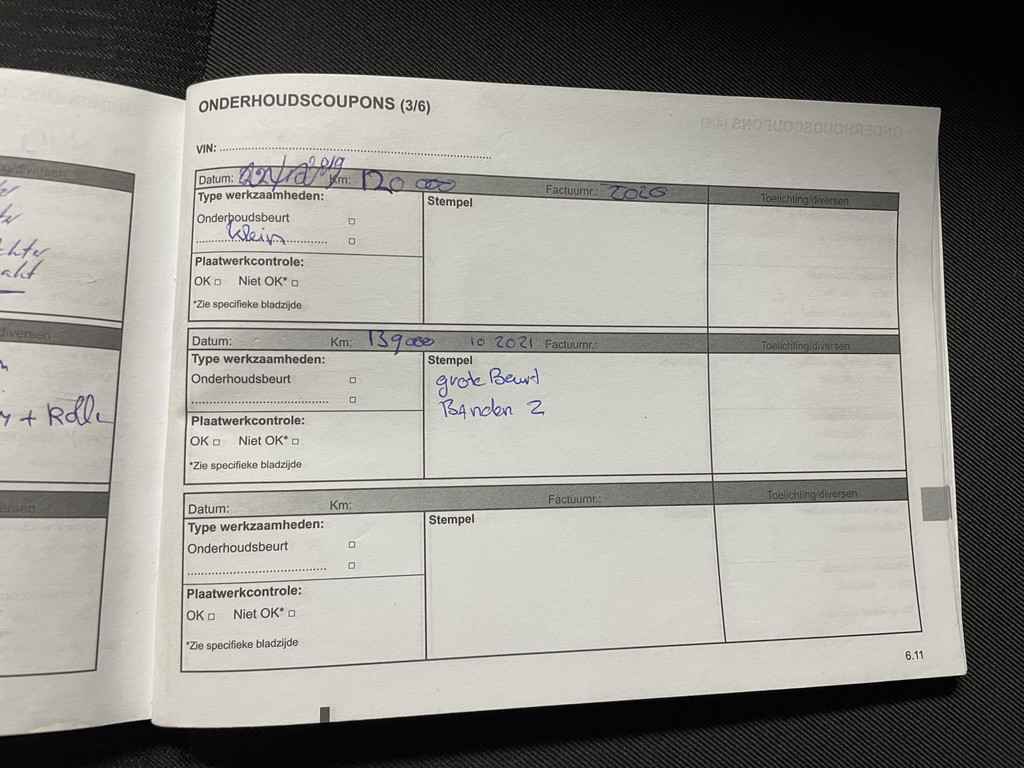 ONDERHOUDSCOUPONS (3/6)
VIN:
Datum: 22/12 2019 Km: 120 000 Factuurnr.: 2020 Toelichting/diversen
Type werkzaamheden:
Stempel
Onderhoudsbeurt
klein
Plaatwerkcontrole:
OK Niet OK*
*Zie specifieke bladzijde
Datum: Km: 139000 10 2021 Factuurnr.: Toelichting/diversen
Type werkzaamheden:
Stempel
Onderhoudsbeurt
grote Beurt
Banden 2
Plaatwerkcontrole:
OK Niet OK*
*Zie specifieke bladzijde
Datum: Km: Factuurnr.: Toelichting/diversen
Type werkzaamheden:
Stempel
Onderhoudsbeurt
Plaatwerkcontrole:
OK Niet OK*
*Zie specifieke bladzijde
6.11